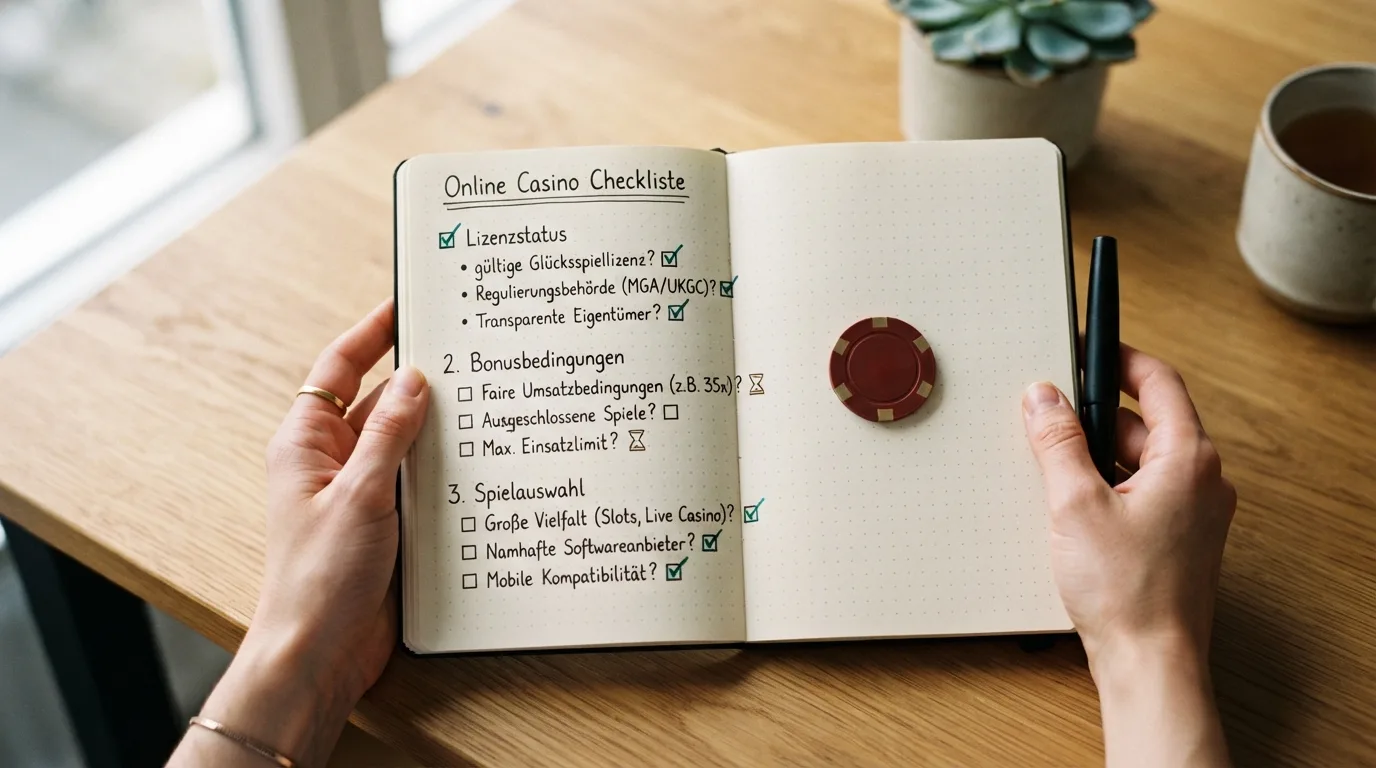 Online Casino Checkliste
☑ Lizenzstatus
• gültige Glücksspiellizenz? ☑
• Regulierungsbehörde (MGA/UKGC)? ☑
• Transparente Eigentümer? ☑
2. Bonusbedingungen
☐ Faire Umsatzbedingungen (z.B. 35x)? ⌛
☐ Ausgeschlossene Spiele? ☐
☐ Max. Einsatzlimit? ⌛
3. Spielauswahl
☐ Große Vielfalt (Slots, Live Casino)? ☑
☐ Namhafte Softwareanbieter? ☑
☐ Mobile Kompatibilität? ☑